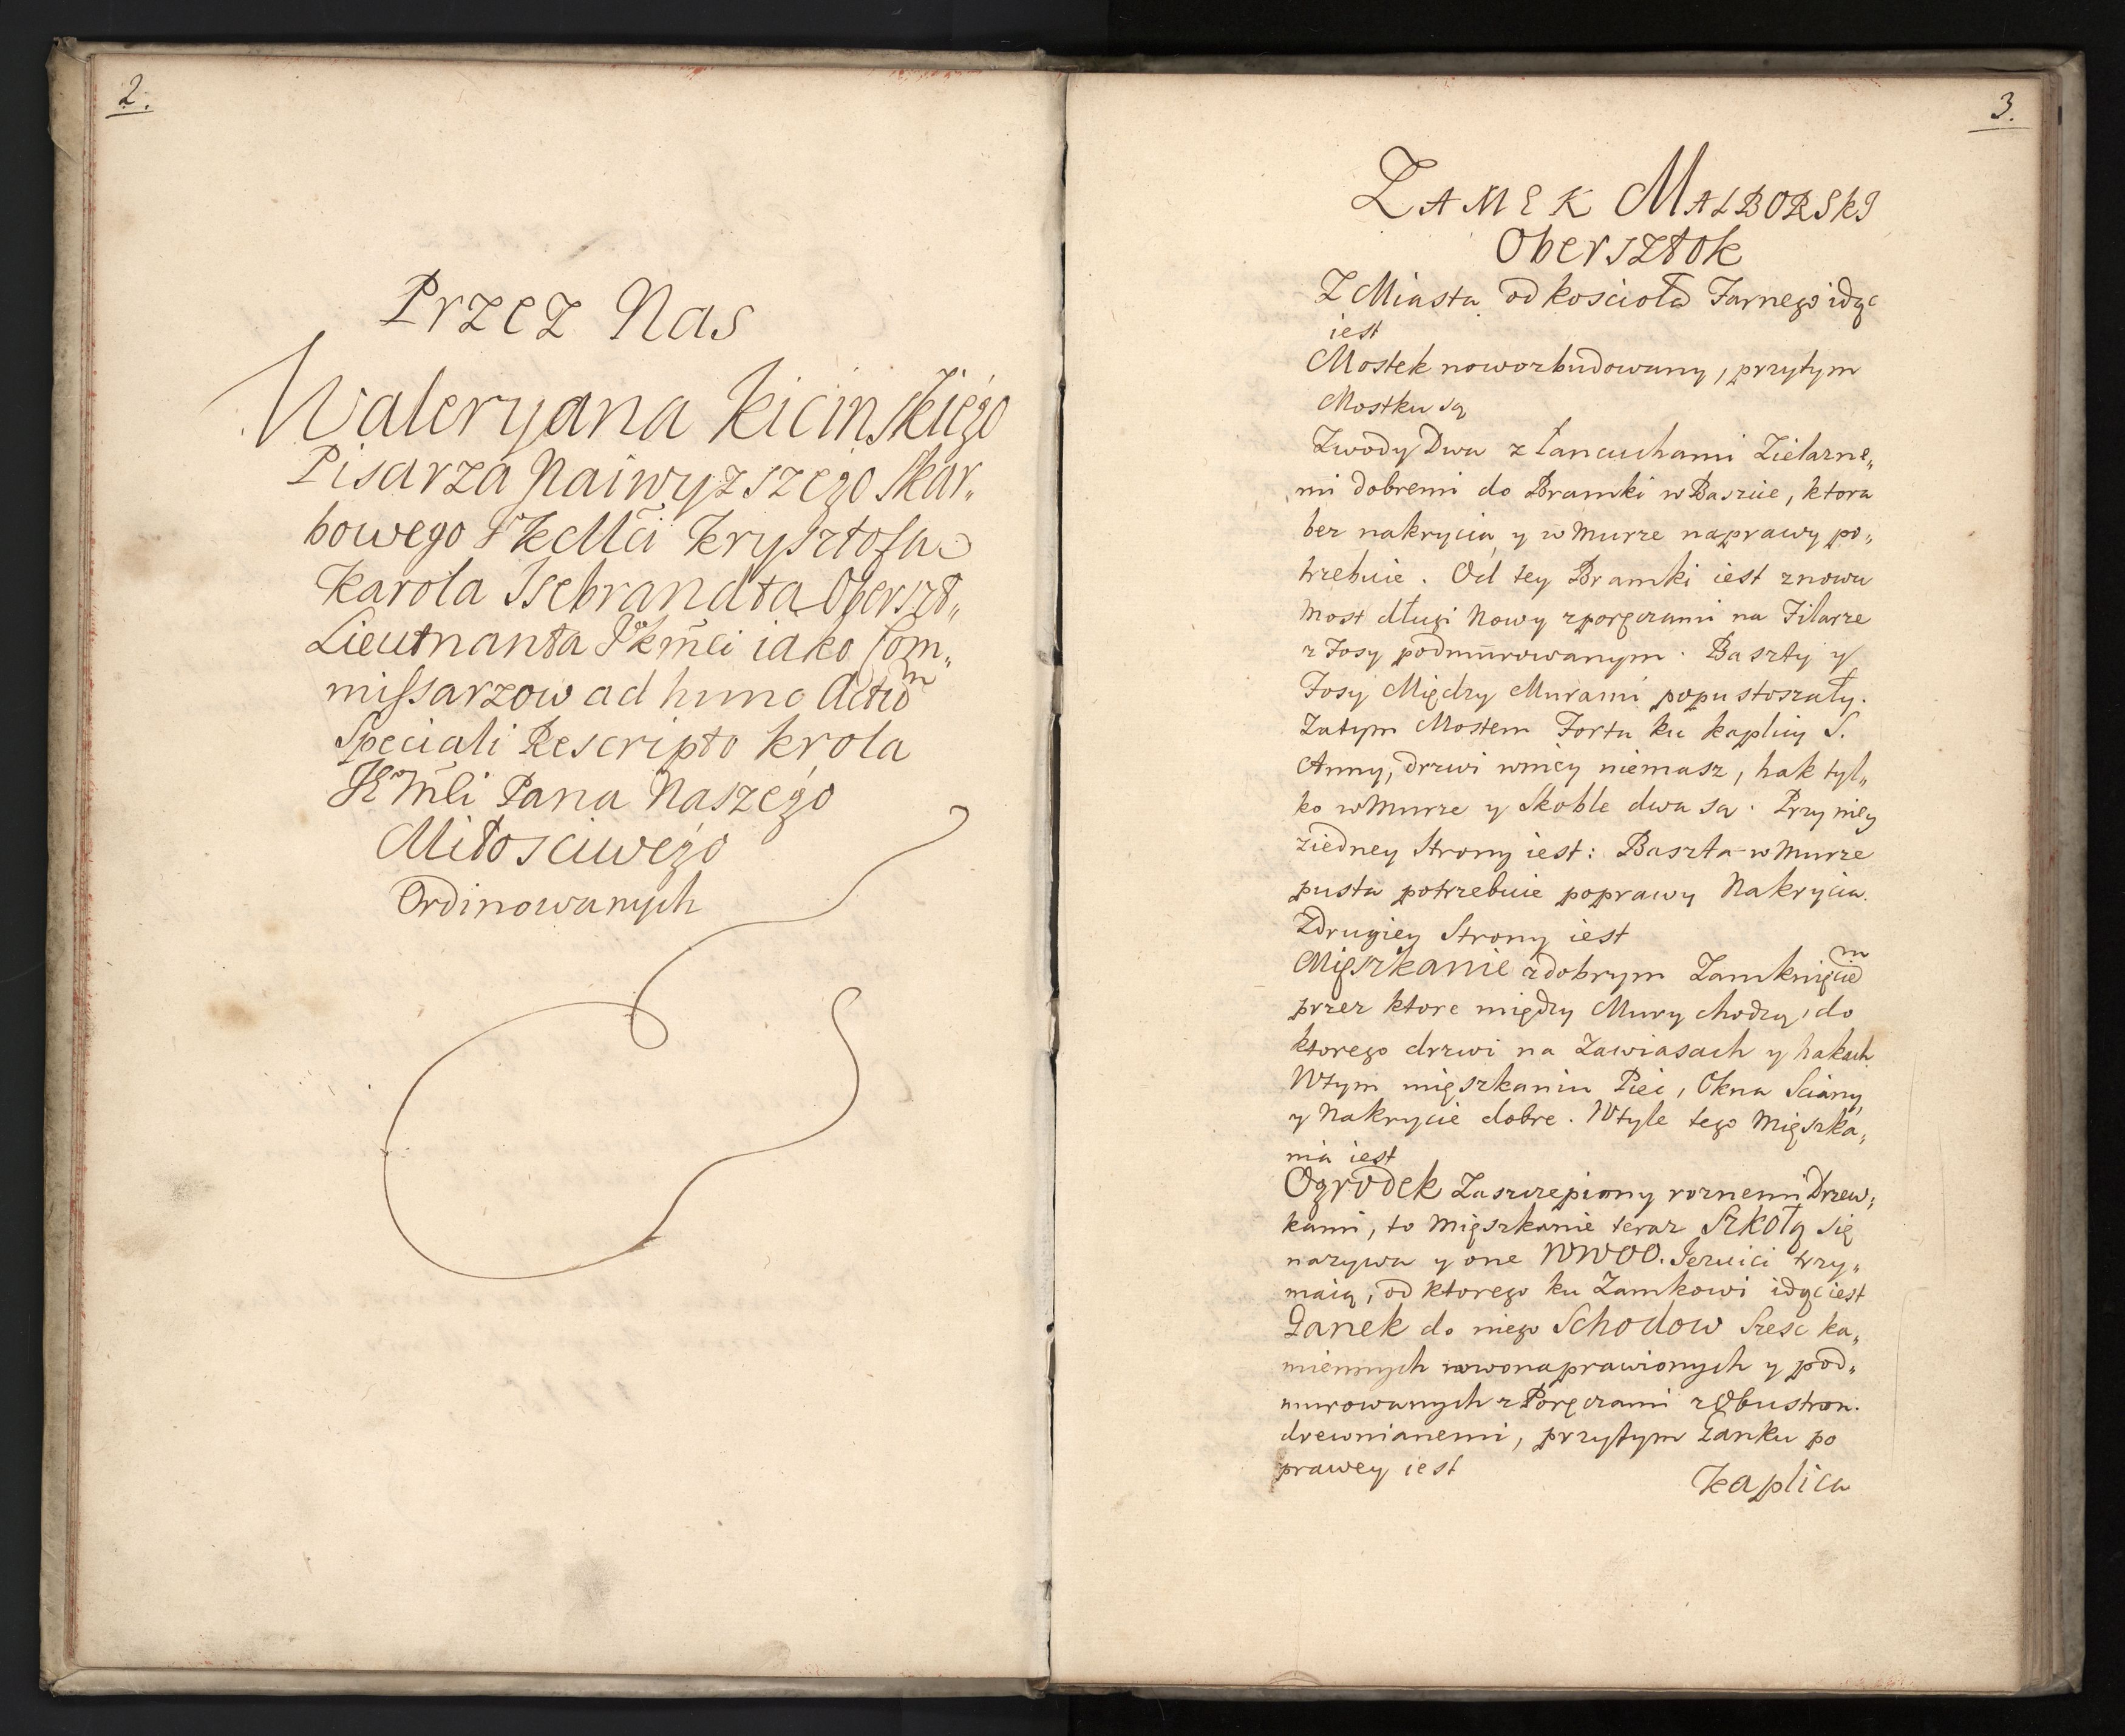 2.
Przez Nas
Waleryana Kicinskiego
Pisarza Naiwyzszego Skar„
bowego JKMci Krysztofa
Karola Isebrandta Oberszt„
Lieutnanta JKMci iako Com„
missarzow ad hunc Actum
Speciali Rescripto Krola
JKMci Pana Naszego
Miłosciwego
Ordinowanych
3.
ZAMEK MALBORSKI
Obersztok
Z Miasta od koscioła Farnego idąc
iest
Mostek nowozbudowany, przytym
Mostku są
Zwody Dwa z łancuchami Zielazne„
mi dobremi do Bramki w Baszcie, ktora
bez nakrycia y w Murze naprawy po„
trzebuie. Od tey Bramki iest znowu
Most długi Nowy zporęczami na Filarze
z Fosy podmurowanym. Baszty y
Fosy Między Murami popustoszały.
Zatym Mostem Forta ku kaplicy S.
Anny, drzwi wniey niemasz, hak tyl„
ko w Murze y Skoble dwa są. Przy niey
ziedney Strony iest: Baszta w Murze
pusta potrzebuie poprawy Nakrycia.
Zdrugiey Strony iest
Mięszkanie zdobrym Zamknięciem
przez ktore między Mury chodzą, do
ktorego drzwi na Zawiasach y hakach
Wtym mięszkaniu Piec, Okna Sciany,
y Nakrycie dobre. Wtyle tego Mięszka„
nia iest
Ogrodek Zaszczepiony roznemi Drzew„
kami, to Mięszkanie teraz Szkołą się
nazywa y one WWOO. Jezuici trzy„
maią, od ktorego ku Zamkowi idąc iest
Ganek do niego Schodow Szesc ka„
miennych nowonaprawionych y pod„
murowanych z Poręczami z Obustron.
drewnianemi, przytym Ganku po
prawey iest
Kaplica